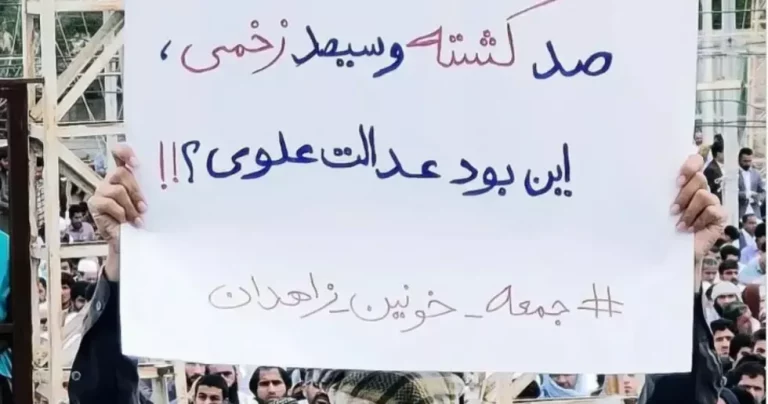 صد کشته و سیصد زخمی ،
این بود عدالت علوی ؟!!
# جمعه_خونین_زاهدان